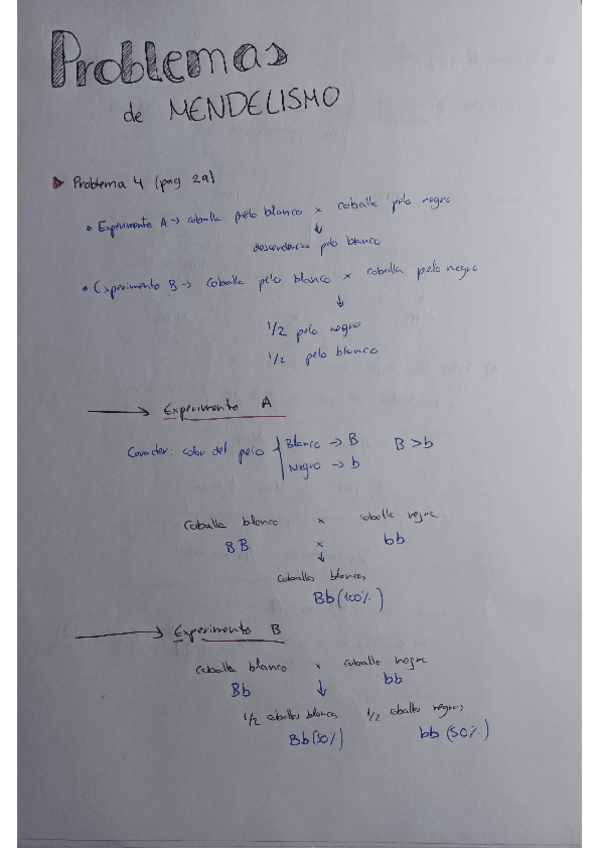 Problemas
de MENDELISMO
Problema 4 (pag 29)
• Experimento A → coballa pelo blanco x coballa pelo negro
↓
descendencia pelo blanco
• Experimento B → coballa pelo blanco x coballa pelo negro
↓
1/2 pelo negro
1/2 pelo blanco
→ Experimento A
Caracter: color del pelo Blanco → B B > b
Negro → b
coballa blanco x coballa negra
BB x bb
↓
coballas blancas
Bb (100%)
→ Experimento B
coballa blanco x coballa negra
Bb ↓ bb
1/2 coballas blancas 1/2 coballas negras
Bb (50%) bb (50%)